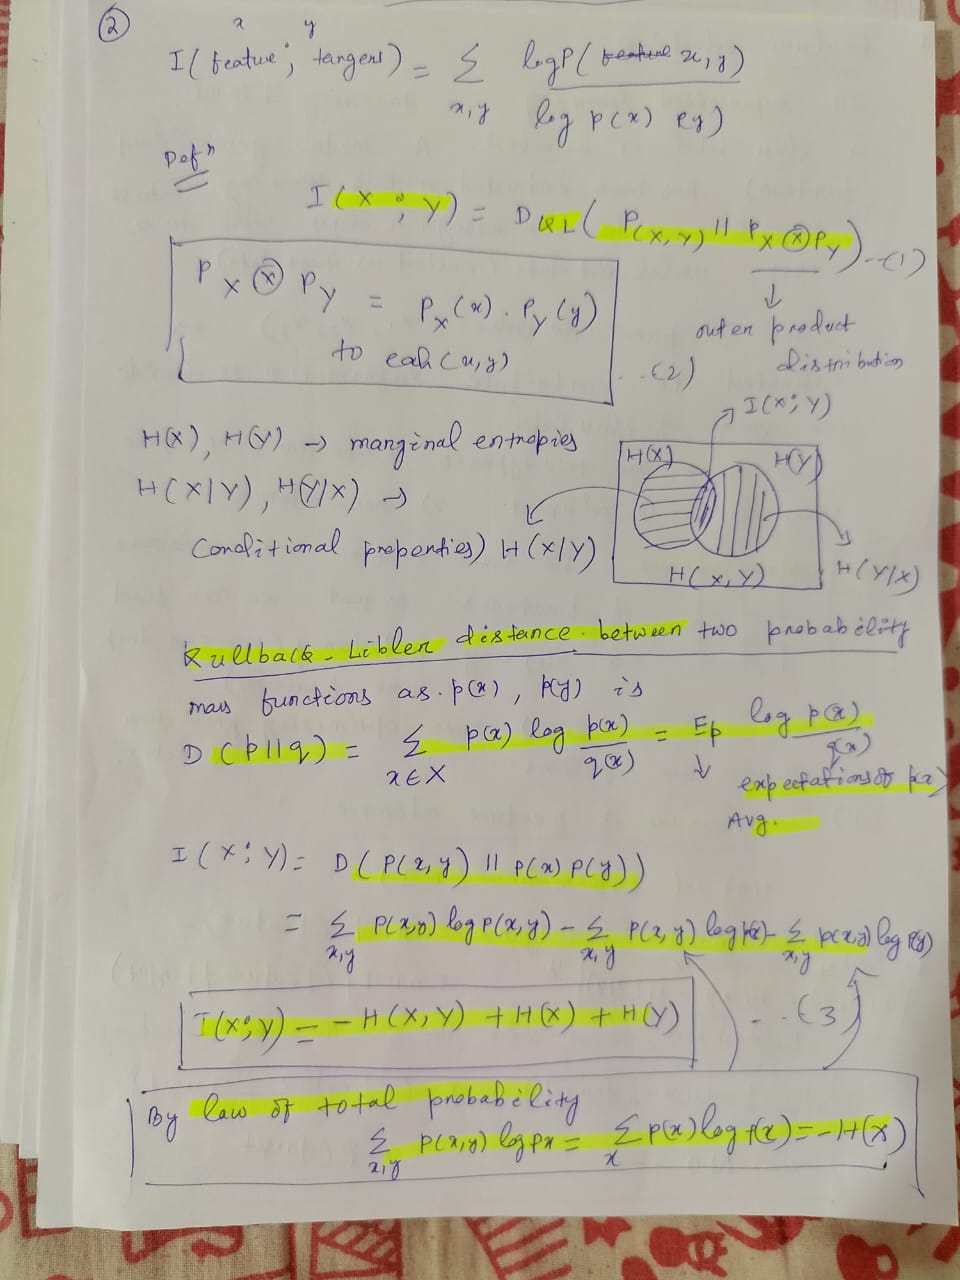 ②
x y
I( featue ; tangent) = Σ x,y logP( feature x, y) / log p(x) p(y)
Defⁿ
I(X ; Y) = D KL( P(X,Y) || P_X ⊗ P_Y) ..(1)
P_X ⊗ P_Y = P_X(x) . P_Y(y)
to eah (x,y)
..(2)
↓
outer product
distribution
H(X), H(Y) → marginal entropies
H(X|Y), H(Y|X) →
Conditional properties) H(X|Y)
I(X; Y)
H(X) H(Y)
H(X,Y) H(Y|X)
Kullback-Libler distance between two probability
mass functions as. p(x), p(y) is
D(p||q) = Σ x∈X p(x) log p(x)/q(x) = Ep log p(x)/q(x)
↓ expectations of p(x)
Avg.
I(X; Y) = D( P(x,y) || P(x) P(y))
= Σ x,y P(x,y) log P(x,y) - Σ x,y P(x,y) log p(x) - Σ x,y p(x,y) log p(y)
I(X;Y) = - H(X,Y) + H(X) + H(Y)
..(3)
By law of total probability
Σ x,y p(x,y) log px = Σ x p(x) log p(x) = -H(X)